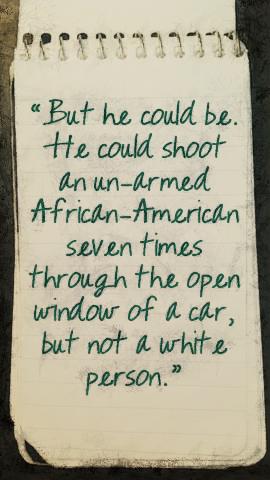 “But he could be.
He could shoot
an un-armed
African-American
seven times
through the open
window of a car,
but not a white
person.”